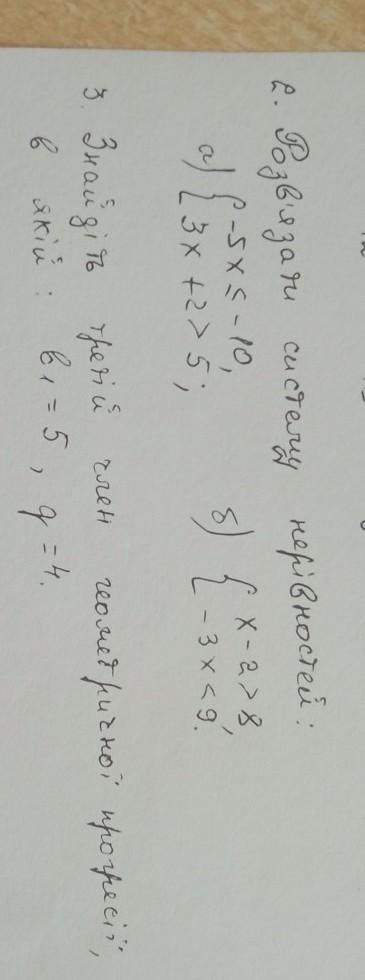 2. Розв'язати систему нерівностей:
а) { -5x ≤ -10, б) { x - 2 > 8,
3x + 2 > 5; - 3x < 9.
3. Знайдіть третій член геометричної прогресії,
в якій: b1 = 5, q = 4.